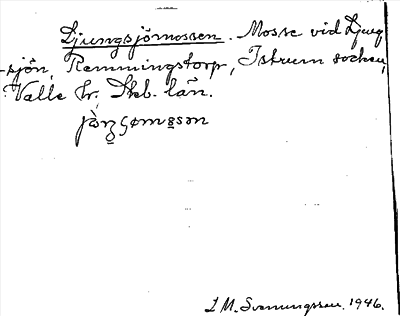 Ljungsjömossen. Mosse vid Ljung
-sjön, Remmingstorp, Istrum socken,
Valle hr, Skb. län.
L M. Svenungsson. 1946.